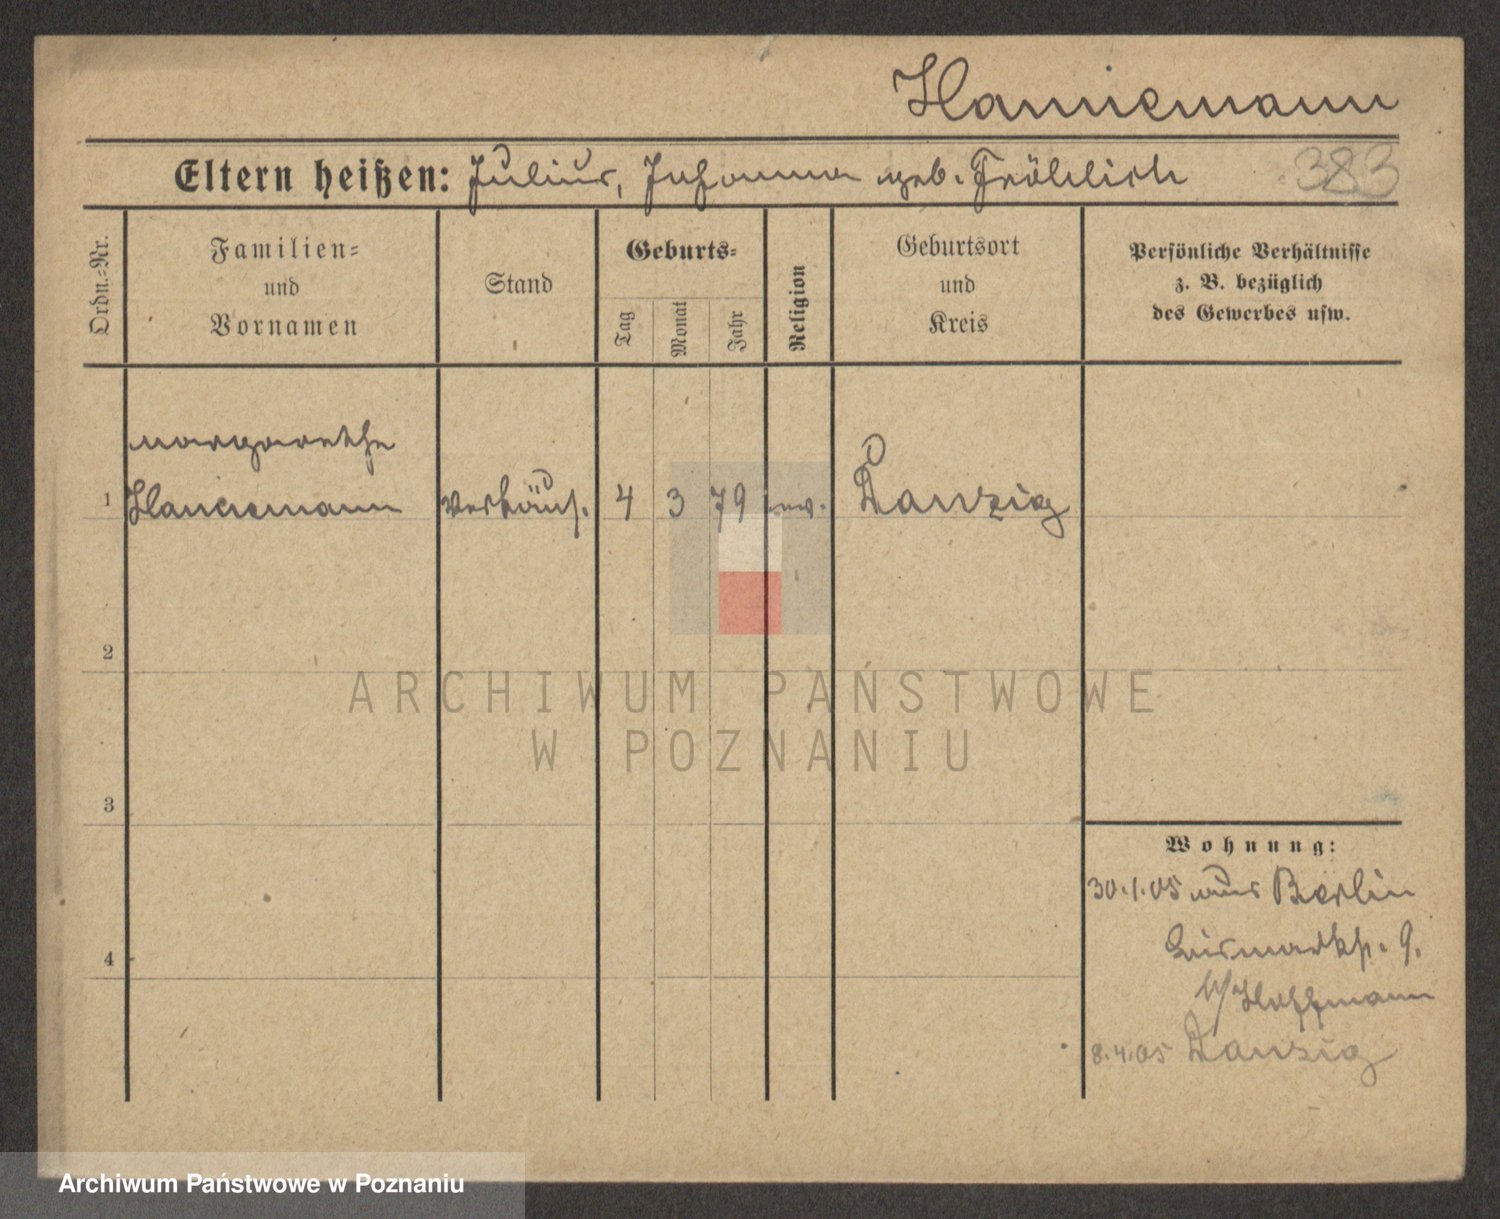 Hannemann
Eltern heißen: Julius, Johanna geb. Fröhlich 383
Ordn.-Nr.
Familien-
und
Vornamen
Stand
Geburts-
Tag
Monat
Jahr
Religion
Geburtsort
und
Kreis
Persönliche Verhältnisse
z. B. bezüglich
des Gewerbes usw.
Margarethe
1 Hannemann Verkäuf. 4 3 79 ev. Danzig
2
3
4
ARCHIWUM PAŃSTWOWE
W POZNANIU
Wohnung:
30.1.05 aus Berlin
Bismarckst. 9.
b/ Hoffmann
8.4.05 Danzig
Archiwum Państwowe w Poznaniu